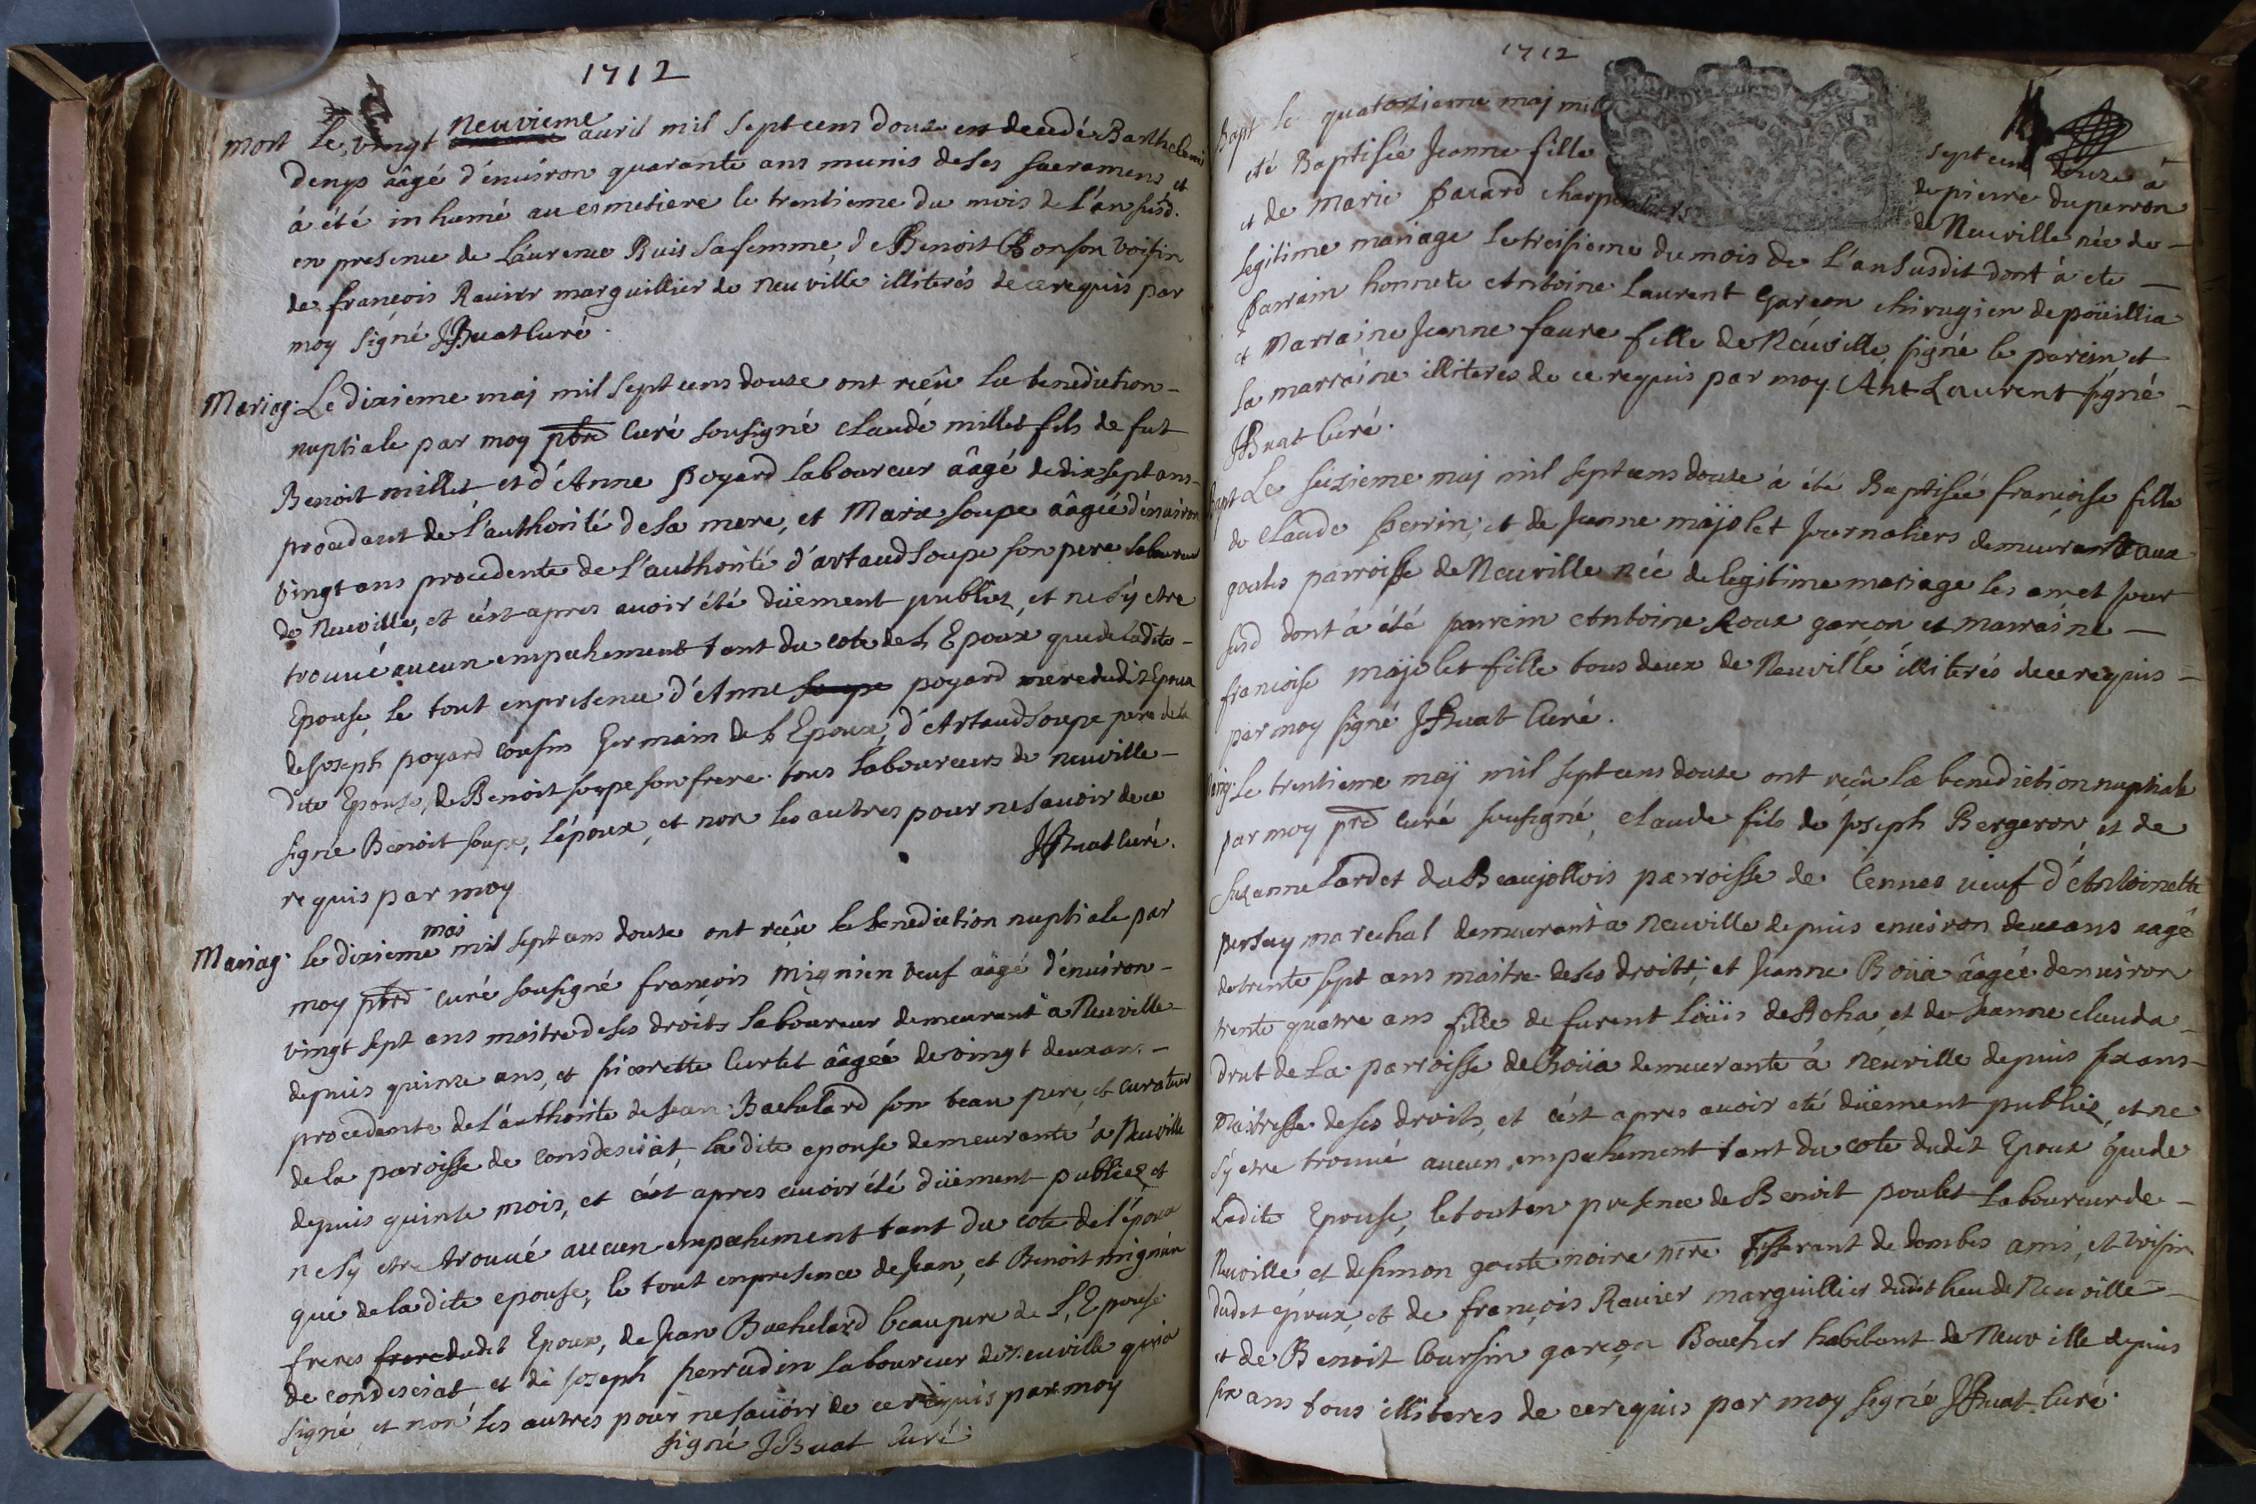 1712
Mort Le vingt neuvieme avril mil sept cens douze est decedé Barthelemi
denys âagé d'énuiron quarante ans munis de ses sacramens et
à été inhumé au cimetiere le trentieme du mois de l'an susd.
en presence de Laurence Buis sa femme, de Benoit Bonson voisin
de françois Ravier marguillier de neuville illiterés de ce requis par
moy signé JBuat Curé.
Mariag: Le dixieme maj mil sept cens douze ont reçû la benediction
nuptiale par moy pbre Curé sousigné Claude millet fils de fut
Benoit millet et d'Anne poyard laboureur âagé de dix sept ans
procedant de l'authorité de sa mere, et Marie soupe âagée d'énuiron
vingt ans procedente de l'authorité d'artaud soupe son pere laboureur
de Neuville, et c'ést apres auoir été düement publiez, et ne s'ÿ etre
trouué aucun empechement tant du cote de l'Epoux que de ladite
Epouse, le tout en presence d'Anne soupe poyard mere dudit Epoux
de Joseph poyard cousin Germain de l'Epoux, d'Artaud soupe pere de la
dite Epouse, de Benoit soupe son frere tous laboureurs de neuville
signé Benoit soupe, l'époux, et non les autres pour ne sauoir de ce
requis par moy JBuat Curé.
Mariag: le dixieme mai mil sept cens douze ont reçû la benediction nuptiale par
moy pbre curé sousigné françois mignien veuf âagé d'énuiron
vingt sept ans maitre de ses droits laboureur demeurant à Neuville
depuis quinze ans, et pierrette Curtet âagée de vingt deux ans
procedente de l'authorité de Jean Bachelard son beau pere, et curateur
de la paroisse de condesciat, ladite epouse demeurante à Neuville
depuis quinze mois, et c'ést apres auoir été düement publiez et
ne s'ÿ etre trouué aucun empechement tant du cote de l'époux
que de ladite epouse, le tout en presence de Jean, et Benoit mignien
freres frere dudit Epoux, de Jean Bachelard beaupere de l'Epouse
de condesciat et de Joseph perradin laboureur de neuville qui a
signé et non les autres pour ne sauoir de ce requis par moy
signé JBuat Curé.
1712
Bapt Le quatorzieme maj mil sept cens douze à
eté Baptisée Jeanne fille de pierre duperron
et de Marie pacard charpentiers de Neuville née de
legitime mariage le troisieme du mois de l'an susdit dont à ete
parrain honnete Antoine Laurent Garçon chirugien de poüillia
et Marraine Jeanne faure fille de Neuville, signé le parein, et
la marraine illiteres de ce requis par moy. Ant Laurent signé
JBuat Curé.
Bapt Le seizieme maj mil sept cens douze à été Baptisée françoise fille
de Claude perrin, et de Jeanne majolet Journaliers demeurants aux
goutes parroisse de Neuville née de legitime mariage les an et jour
susd dont à été parrein Antoine Roux garçon et marraine
françoise majolet fille tous deux de Neuville illiterés de ce requis
par moy signé JBuat Curé.
Mariag: Le trentieme maÿ mil sept cens douze ont reçû la benediction nuptiale
par moy pre curé sousigné, Claude fils de Joseph Bergeron, et de
Suzanne Lardet du Beaujollois parroisse de Cennes veuf d'Antoinette
persay marechal demeurant à neuville depuis enuiron deux ans aagé
de trente sept ans maitre de ses droits, et Jeanne Boüa âagée denuiron
trente quatre ans fille de furent Loüis de Boha, et de Jeanne clauda
drut de la parroisse de Boüa demeurante à neuville depuis six ans
maitresse de ses droits, et c'ést apres auoir eté düement publiés, et ne
s'ÿ etre trouué aucun empechement tant du cote dudit Epoux que de
Ladite Epouse, le tout en presence de Benoit poulet laboureur de
Neuville, et de simon goute noire tisserant de dombes ami, et voisin
dudit époux, et de françois Ravier marguillier dudit lieu de Neuville
et de Benoit Coursin garçon Boucher habitant de Neuville depuis
six ans tous illiteres de ce requis par moy signé JBuat Curé